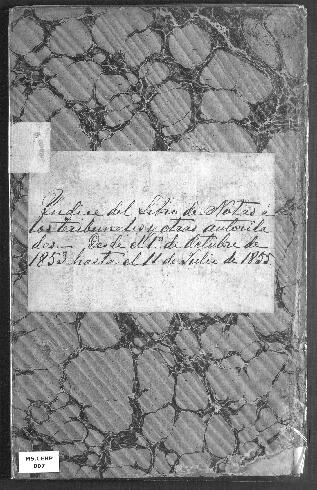 Indice del Libro de Notas á
los tribunales y otras autorida
des. Desde el 1º de Octubre de
1853 hasta el 11 de Julio de 1855
MS.LEHP
007